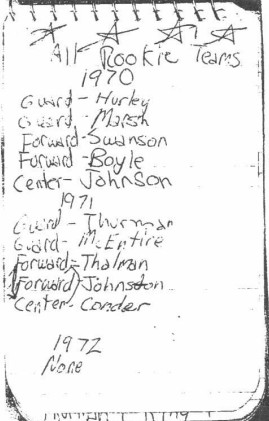 All Rookie Teams
1970
Guard - Hurley
Guard - Marsh
Forward - Swanson
Forward - Boyle
Center - Johnson
1971
Guard - Thurman
Guard - McEntire
Forward - Thalman
Forward - Johnston
Center - Conder
1972
None